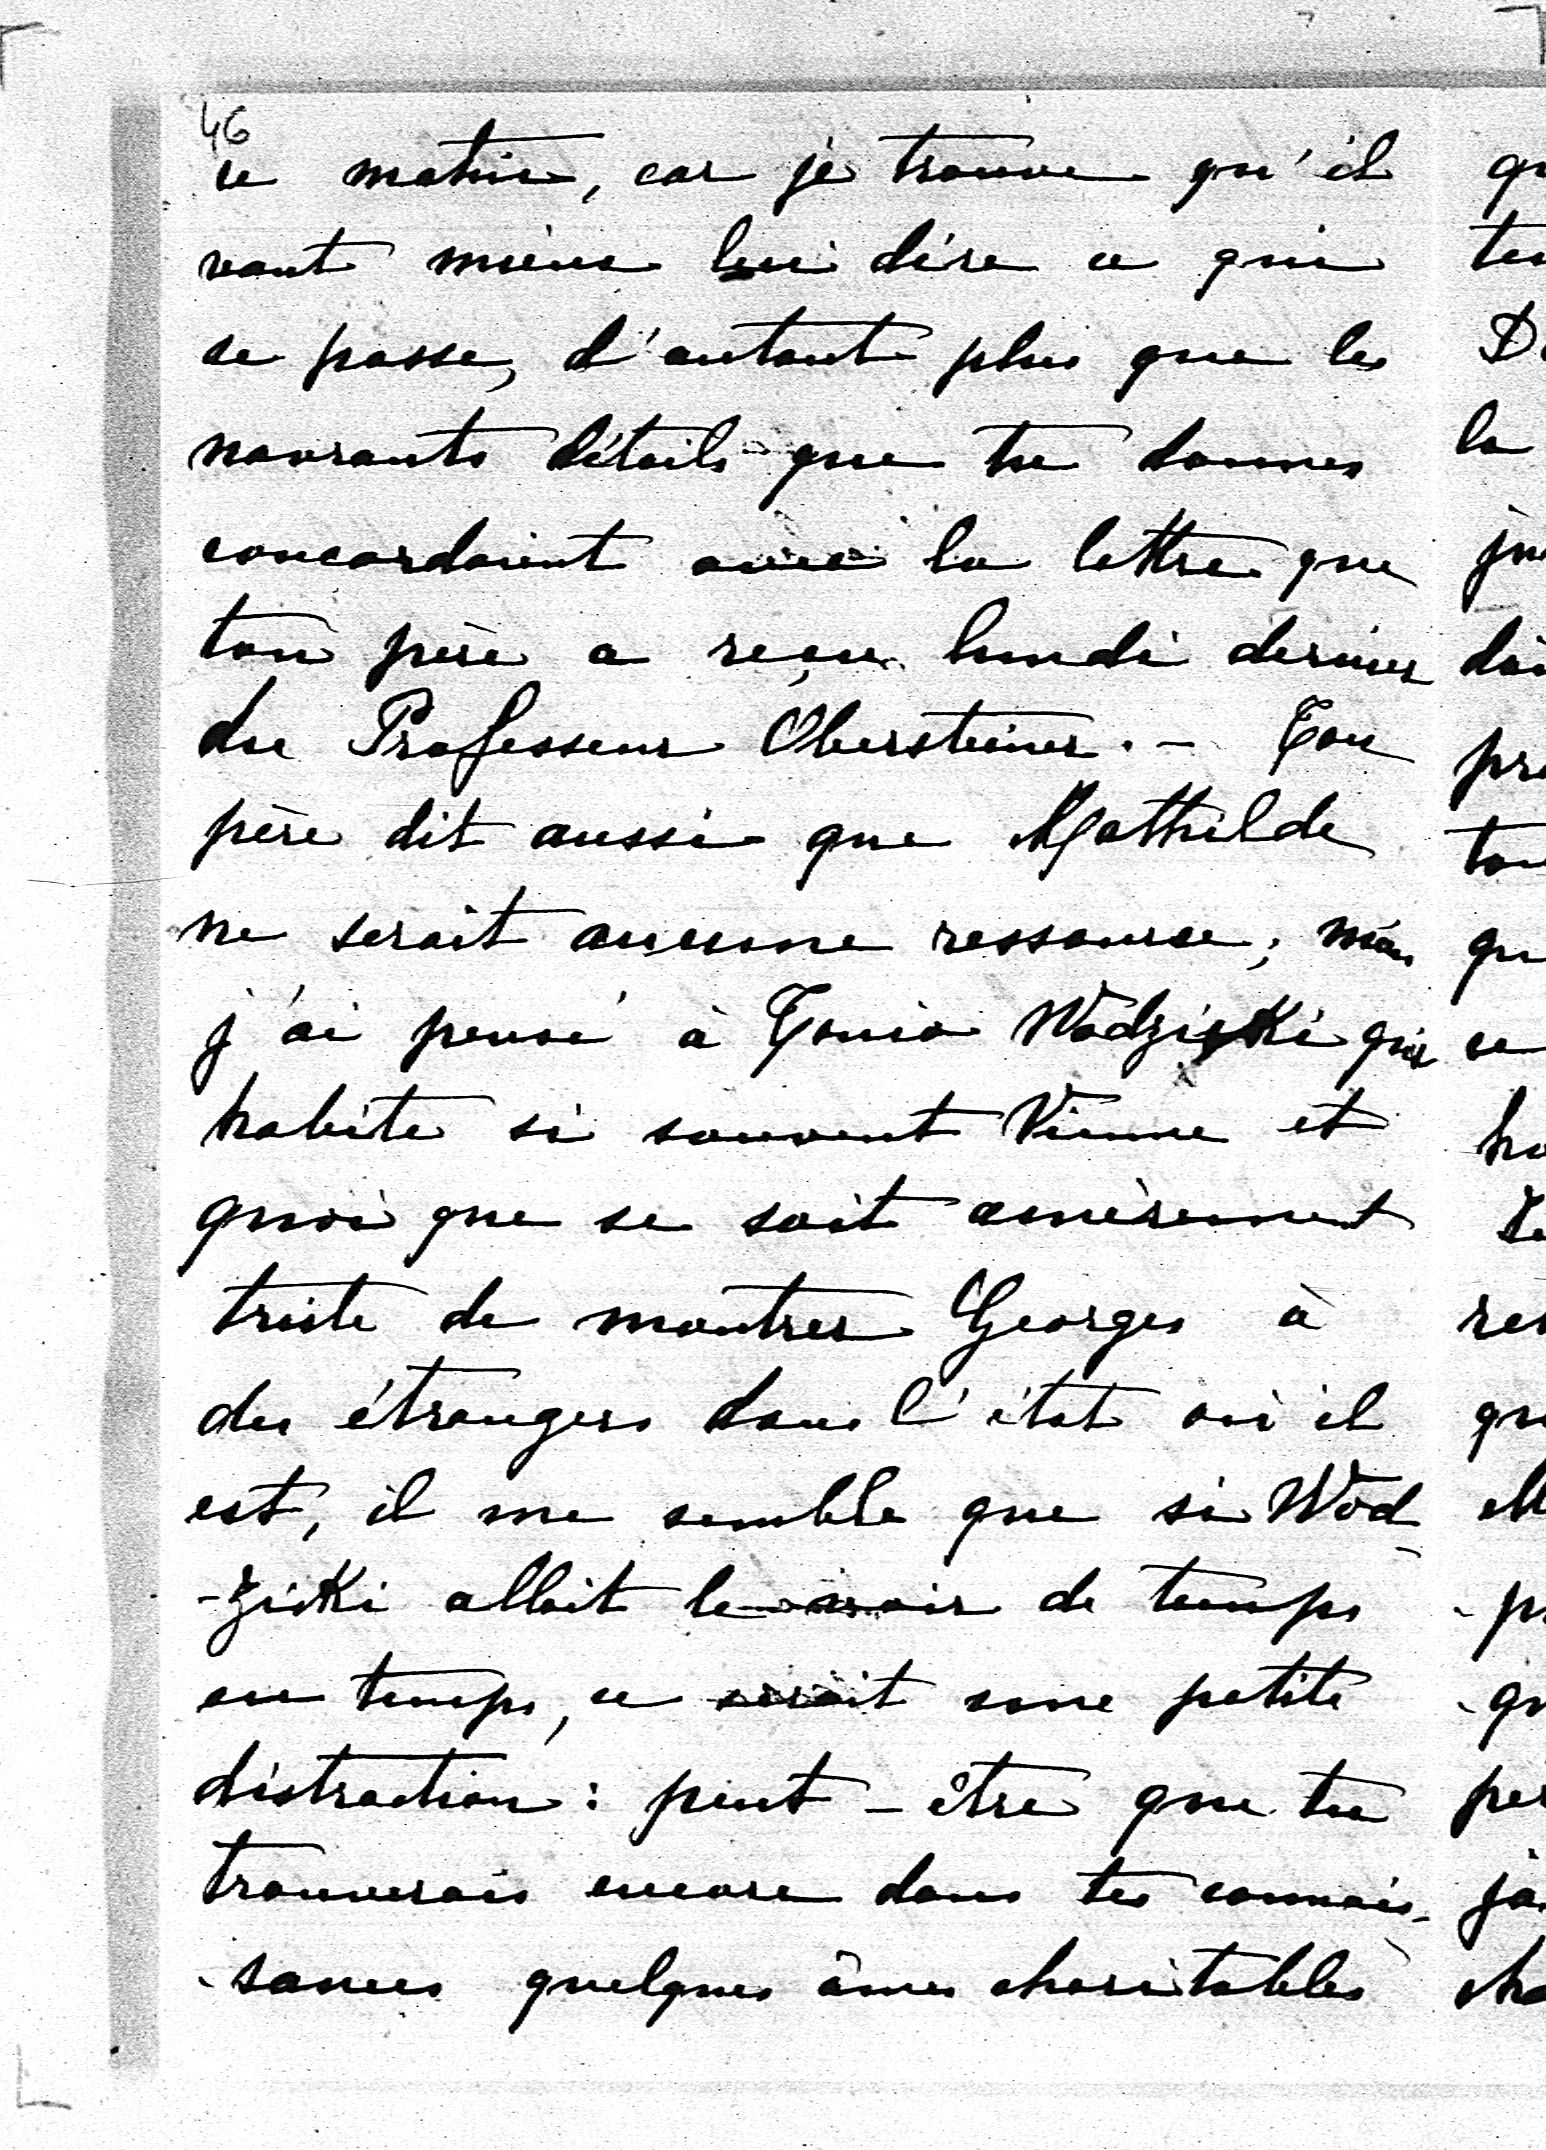 46
ce matin, car je trouve qu'il
vaut mieux lui dire ce qui
se passe, d'autant plus que les
navrants détails que tu donnes
concordaient avec la lettre que
ton père a reçue lundi dernier
du Professeur Obersteiner. - Ton
père dit aussi que Mathilde
ne serait aucune ressource; mais
j'ai pensé à Tonio Wodzicki qui
habite si souvent Vienne et
quoi que se soit amèrement
triste de montrer Georges à
des étrangers dans l'état où il
est, il me semble que si Wod
-zicki allait le voir de temps
en temps, ce serait une petite
distraction: peut-être que tu
trouverais encore dans tes connais-
-sances quelques âmes charitables